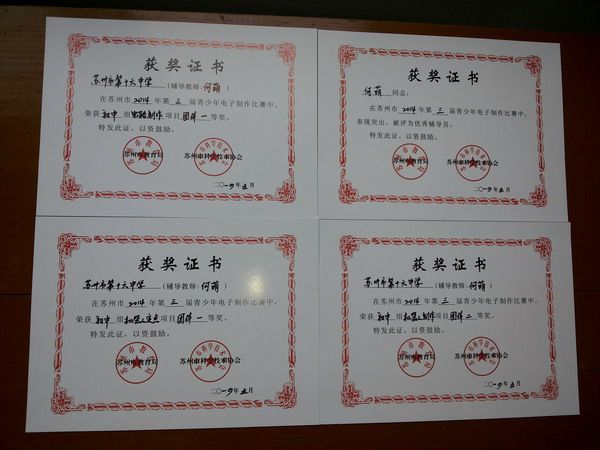 获奖证书
苏州市第十六中学（辅导教师:何萌）
在苏州市2014年第三届青少年电子制作比赛中，
荣获初中组电路制作项目团体一等奖。
特发此证，以资鼓励。
苏州市教育局 苏州市科学技术协会
二〇一四年五月
获奖证书
何萌同志:
在苏州市2014年第三届青少年电子制作比赛中，
表现突出，被评为优秀辅导员。
特发此证，以资鼓励。
苏州市教育局 苏州市科学技术协会
二〇一四年五月
获奖证书
苏州市第十六中学（辅导教师:何萌）
在苏州市2014年第三届青少年电子制作比赛中，
荣获初中组机器人项目团体一等奖。
特发此证，以资鼓励。
苏州市教育局 苏州市科学技术协会
二〇一四年五月
获奖证书
苏州市第十六中学（辅导教师:何萌）
在苏州市2014年第三届青少年电子制作比赛中，
荣获初中组机器人制作项目团体二等奖。
特发此证，以资鼓励。
苏州市教育局 苏州市科学技术协会
二〇一四年五月